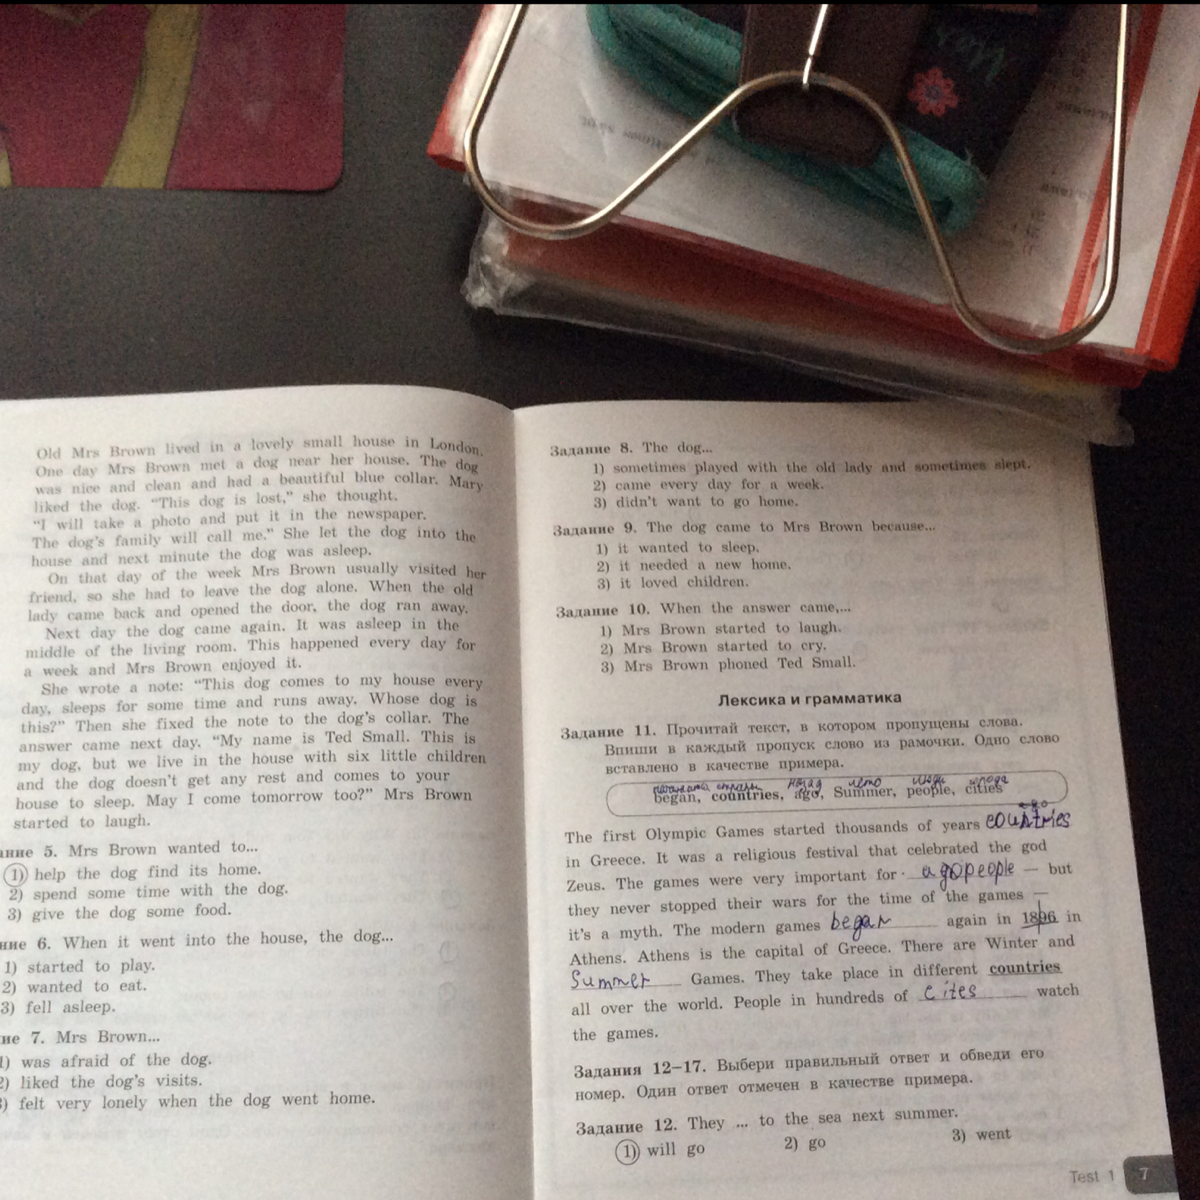 Old Mrs Brown lived in a lovely small house in London.
One day Mrs Brown met a dog near her house. The dog
was nice and clean and had a beautiful blue collar. Mary
liked the dog. “This dog is lost,” she thought.
“I will take a photo and put it in the newspaper.
The dog's family will call me.” She let the dog into the
house and next minute the dog was asleep.
On that day of the week Mrs Brown usually visited her
friend, so she had to leave the dog alone. When the old
lady came back and opened the door, the dog ran away.
Next day the dog came again. It was asleep in the
middle of the living room. This happened every day for
a week and Mrs Brown enjoyed it.
She wrote a note: “This dog comes to my house every
day, sleeps for some time and runs away. Whose dog is
this?” Then she fixed the note to the dog's collar. The
answer came next day. “My name is Ted Small. This is
my dog, but we live in the house with six little children
and the dog doesn't get any rest and comes to your
house to sleep. May I come tomorrow too?” Mrs Brown
started to laugh.
ание 5. Mrs Brown wanted to...
1) help the dog find its home.
2) spend some time with the dog.
3) give the dog some food.
ние 6. When it went into the house, the dog...
1) started to play.
2) wanted to eat.
3) fell asleep.
ие 7. Mrs Brown...
1) was afraid of the dog.
2) liked the dog's visits.
3) felt very lonely when the dog went home.
Задание 8. The dog...
1) sometimes played with the old lady and sometimes slept.
2) came every day for a week.
3) didn't want to go home.
Задание 9. The dog came to Mrs Brown because...
1) it wanted to sleep.
2) it needed a new home.
3) it loved children.
Задание 10. When the answer came,...
1) Mrs Brown started to laugh.
2) Mrs Brown started to cry.
3) Mrs Brown phoned Ted Small.
Лексика и грамматика
Задание 11. Прочитай текст, в котором пропущены слова.
Впиши в каждый пропуск слово из рамочки. Одно слово
вставлено в качестве примера.
страны назад лето люди города
began, countries, ago, Summer, people, cities
ago
The first Olympic Games started thousands of years countries
in Greece. It was a religious festival that celebrated the god
Zeus. The games were very important for agopeople — but
they never stopped their wars for the time of the games —
it's a myth. The modern games began again in 1896 in
Athens. Athens is the capital of Greece. There are Winter and
Summer Games. They take place in different countries
all over the world. People in hundreds of cites watch
the games.
Задания 12–17. Выбери правильный ответ и обведи его
номер. Один ответ отмечен в качестве примера.
Задание 12. They ... to the sea next summer.
1) will go 2) go 3) went
Test 1 7